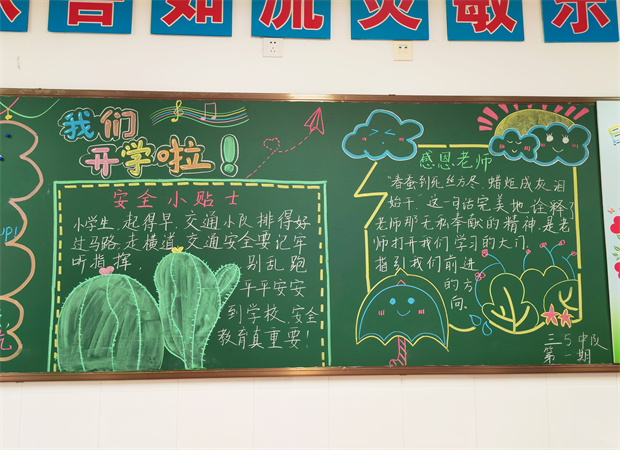 如流 灵敏
我们
开学啦！
安全小贴士
小学生，起得早，交通小队排得好
过马路，走横道，交通安全要记牢
听指挥，别乱跑
平平安安
到学校，安全
教育真重要！
感恩老师
"春蚕到死丝方尽，蜡炬成灰泪
始干"，这一句话完美地诠释了
老师那无私奉献的精神，是老
师打开我们学习的大门，
指引我们前进
的方
向。
三5中队
第一期